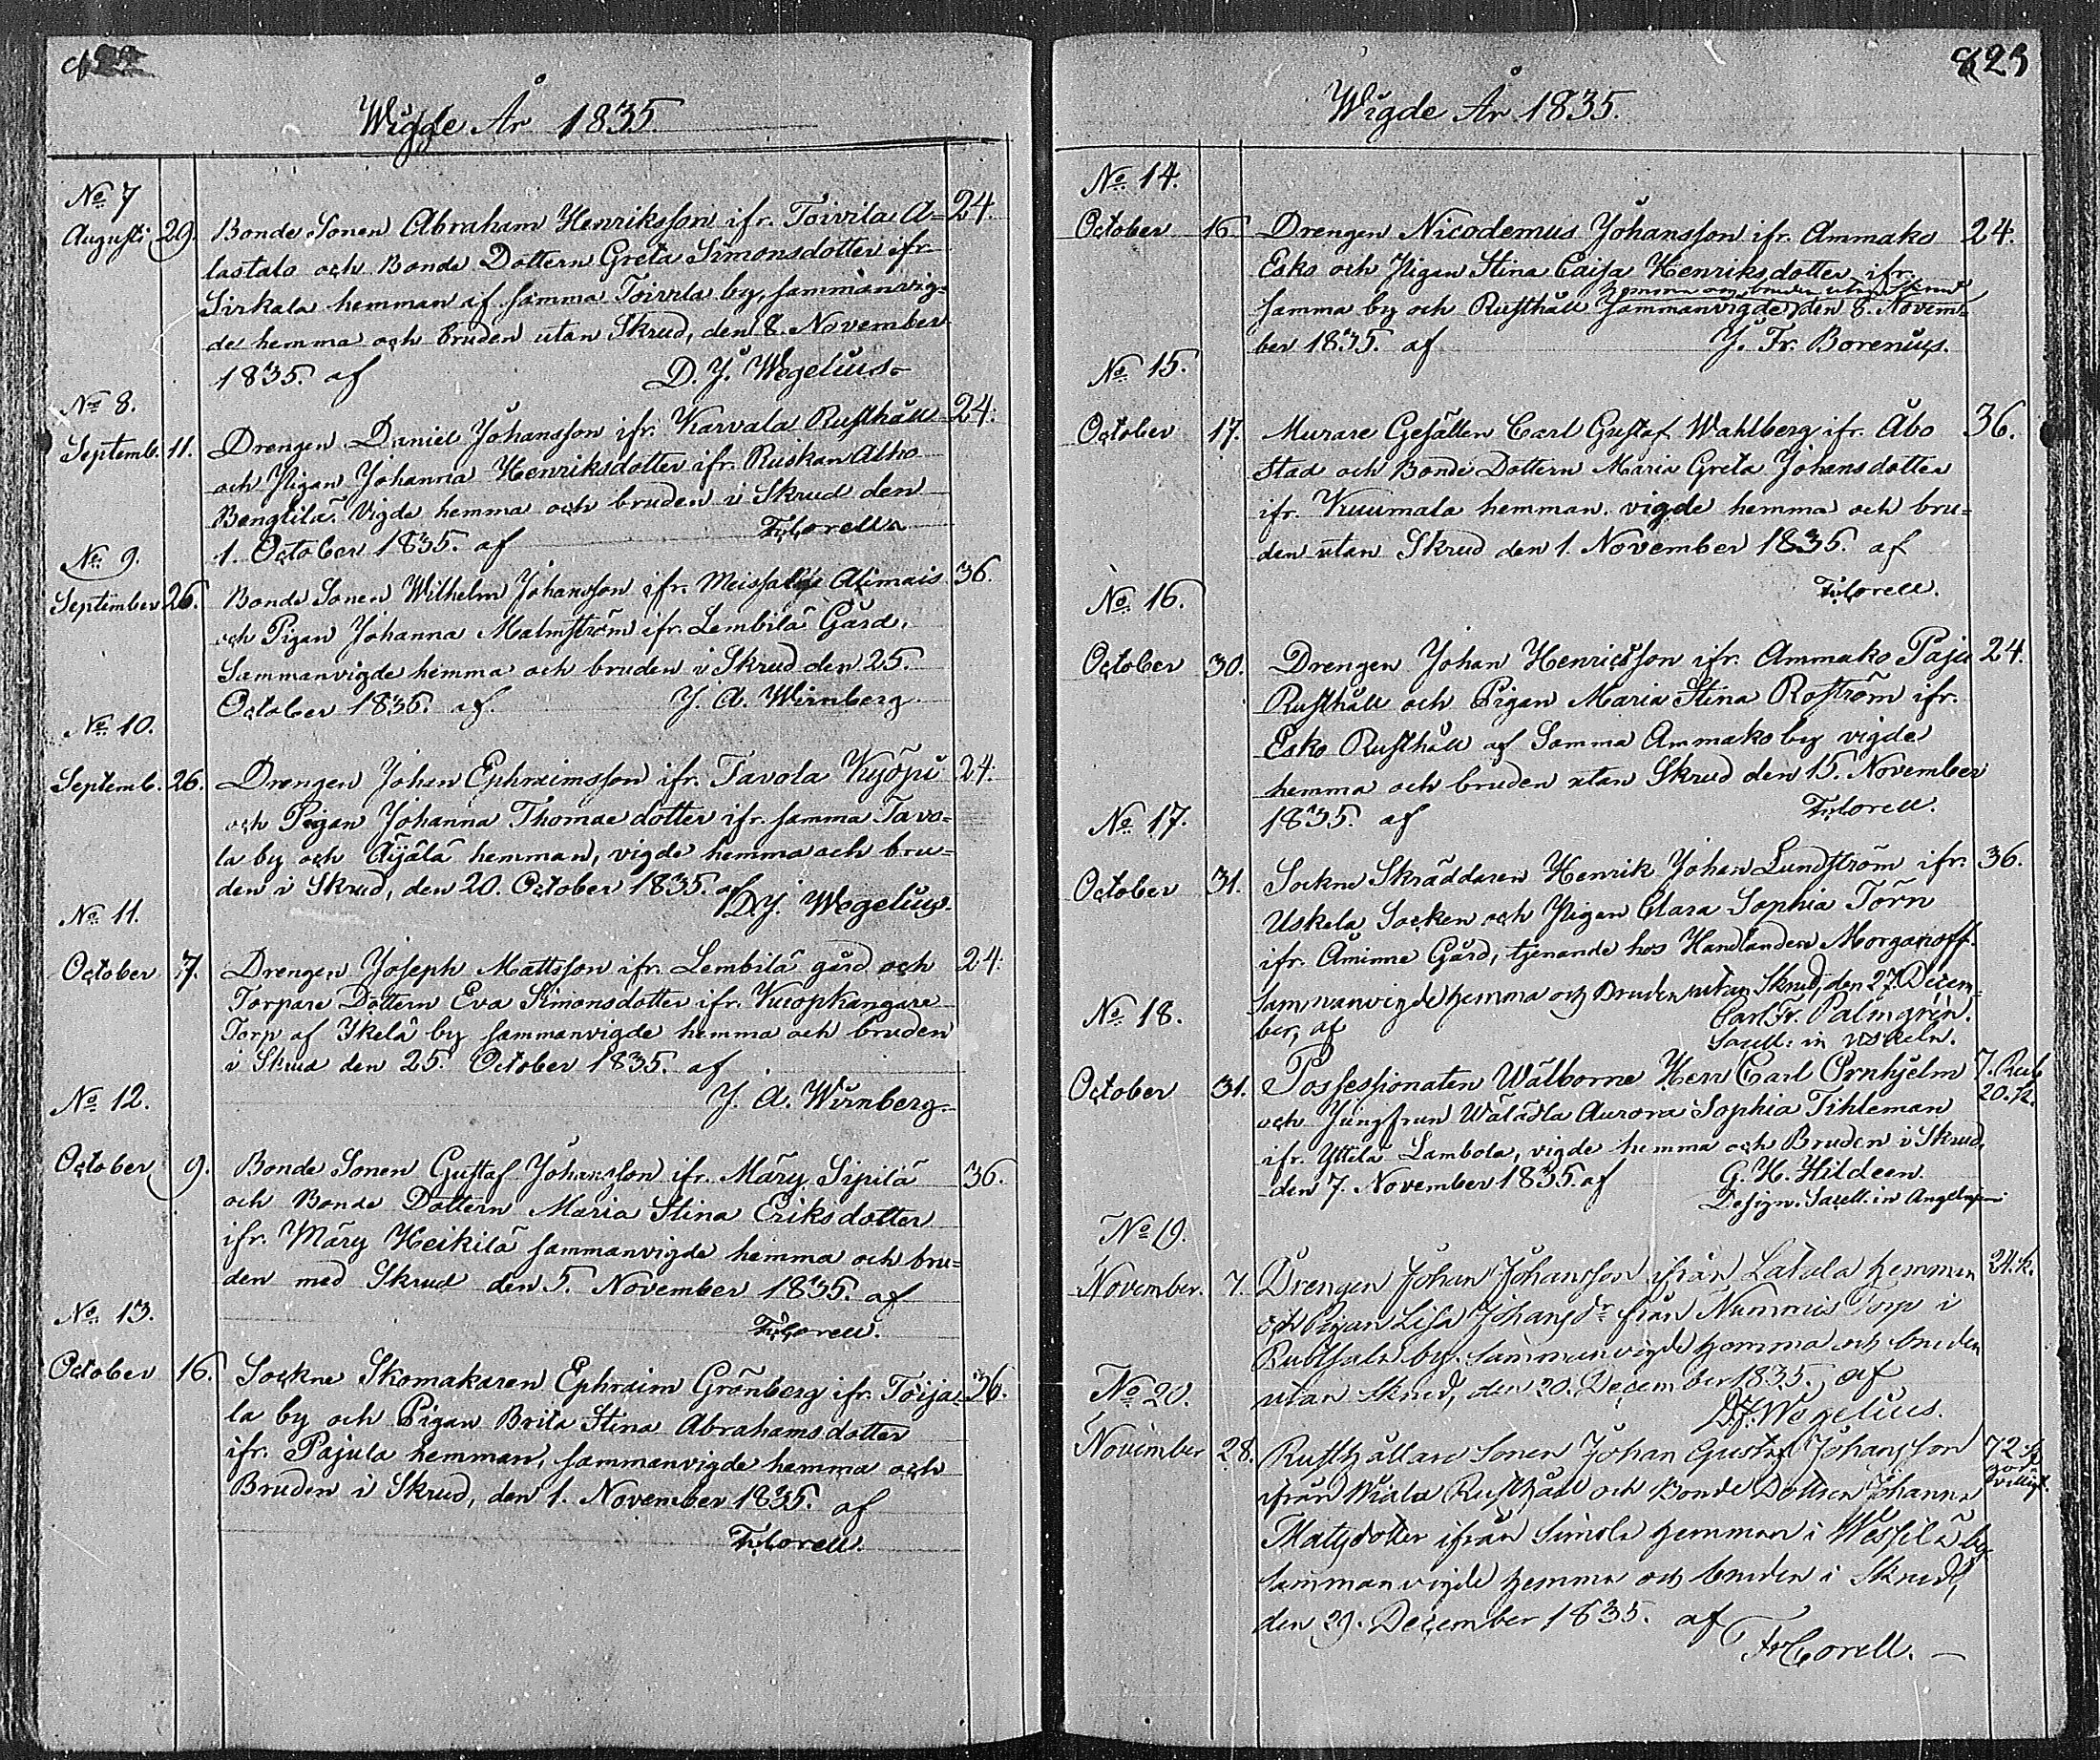 Wigde År 1835.
No 7
Augusti 29. Bonde Sonen Abraham Henriksson ifr. Toivila A= 24.
lastalo och Bonde Dottern Greta Simonsdotter ifr.
Sirkala hemman af samma Toivila by, sammanvig=
de hemma och bruden utan Skrud, den 8. November
1835. af D. J. Wegelius
No 8.
Septemb. 11. Drengen Daniel Johansson ifr. Karvala Rusthåll 24.
och Pigan Johanna Henriksdotter ifr. Ruskan Alho
Bengtilä. Vigde hemma och bruden i Skrud den
1. October 1835. af Fr. Corell
No 9.
September 26. Bonde Sonen Wilhelm Johansson ifr. Alimais 36.
och Pigan Johanna Malmström ifr. Lembilä Gård,
Sammanvigde hemma och bruden i Skrud den 25.
October 1835. af J. A. Wirnberg
No 10.
Septemb. 26. Drengen Johan Ephraimsson ifr. Tavola Kyöpi 24.
och Pigan Johanna Thomae dotter ifr. samma Tavo=
la by och Äijälä hemman, vigde hemma och bru=
den i Skrud, den 20. October 1835. af
D. J. Wegelius.
No 11.
October 7. Drengen Joseph Mattsson ifr. Lembilä gård och 24.
Torpare Dottern Eva Simonsdotter ifr.
Torp af Ykelä by sammanvigde hemma och bruden
i Skrud den 25. October 1835. af
J. A. Wirnberg.
No 12.
October 9. Bonde Sonen Gustaf Johansson ifr. Märy Sipilä 36.
och Bonde Dottern Maria Stina Eriksdotter
ifr. Märy Heikilä sammanvigde hemma och bru=
den med Skrud den 5. November 1835. af
Fr. Corell.
No 13.
October 16. Sockne Skomakaren Ephraim Grönberg ifr. Toija= 36.
la by och Pigan Brita Stina Abrahamsdotter
ifr. Pajula hemman, sammanvigde hemma och
Bruden i Skrud, den 1. November 1835. af
Fr. Corell.
823
Wigde År 1835.
No 14.
October 16 Drengen Nicodemus Johansson ifr. Ammako 24.
Esko och Pigan Stina Caisa Henriksdotter ifr.
hemma och bruden utan Skrud
samma by och Rusthåll sammanvigde den 8. Novem=
ber 1835. af J. Fr. Borenius.
No 15.
October 17. Murare Gesällen Carl Gustaf Wahlberg ifr. Åbo 36.
Stad och Bonde Dottern Maria Greta Johansdotter
ifr. Kuumala hemman. vigde hemma och bru=
den utan Skrud den 1. November 1835. af
Fr. Corell.
No 16.
October 30. Drengen Johan Henricsson ifr. Ammako Paju 24.
Rusthåll och Pigan Maria Stina Roström ifr.
Esko Rusthåll af Samma Ammako by vigde
hemma och bruden utan Skrud den 15. November
1835. af Fr. Corell.
No 17.
October 31. Sockne Skräddaren Henrik Johan Lundström ifr. 36.
Uskela Socken och Pigan Clara Sophia Törn
ifr. Åminne Gård, tjenande hos Handlanden Morganoff.
Sammanvigde hemma och Bruden utan Skrud, den 27. Decem=
ber, af Carl Fr. Palmgrén.
Sacell: in Uskela.
No 18.
October 31. Possessionaten Wälborne Herr Carl Örnhjelm 7. Rub
20. k.
och Jungfrun Wälädla Aurora Sophia Tihleman
ifr. Yttelä Lambola, vigde hemma och Bruden i Skrud,
den 7. November 1835. af G. H. Hildeen.
Design. Sacell. in Angelniemi
No 19.
November. 7. Drengen Johan Johansson ifrån Latula hemman 24. k.
och Pigan Lisa Johansdr från Nummis Torp i
by. sammanvigde hemma och bruden
utan Skrud, den 20. December 1835. af
D. J. Wegelius.
No 20.
November 28. Rusthållare Sonen Johan Gustaf Johansson 72. k
ifrån Wiala Rusthåll och Bonde Dottren Johanna
Mattsdotter ifrån Simola hemman i Wessilä by
Sammanvigde hemma och bruden i Skrud,
den 29. December 1835. af
Fr. Corell.